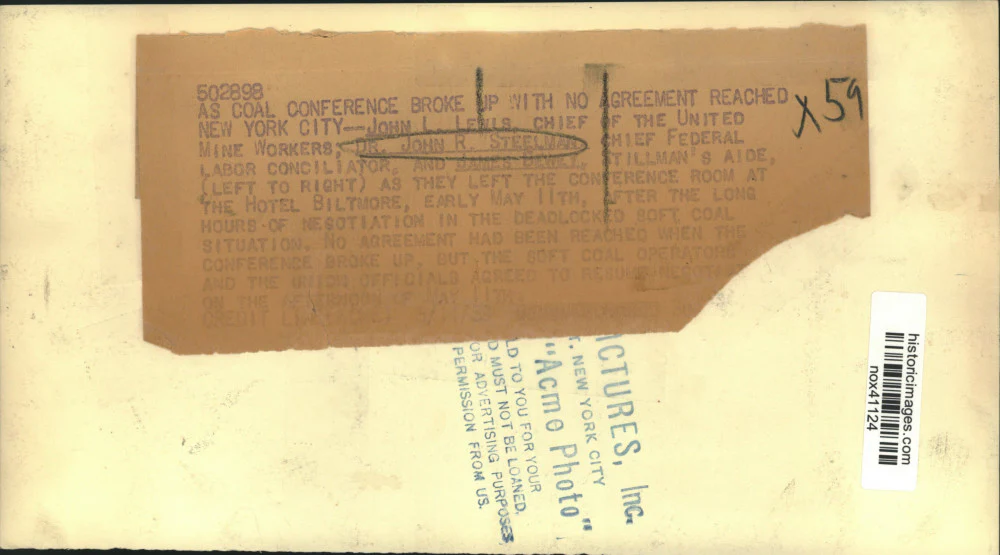 502898
AS COAL CONFERENCE BROKE UP WITH NO AGREEMENT REACHED
NEW YORK CITY--JOHN L. LEWIS, CHIEF OF THE UNITED
MINE WORKERS, DR. JOHN R. STEELMAN, CHIEF FEDERAL
LABOR CONCILIATOR, AND JAMES DEWEY, STILLMAN'S AIDE,
(LEFT TO RIGHT) AS THEY LEFT THE CONFERENCE ROOM AT
THE HOTEL BILTMORE, EARLY MAY 11TH, AFTER THE LONG
HOURS OF NEGOTIATION IN THE DEADLOCKED SOFT COAL
SITUATION. NO AGREEMENT HAD BEEN REACHED WHEN THE
CONFERENCE BROKE UP, BUT THE SOFT COAL OPERATORS
AND THE UNION OFFICIALS AGREED TO RESUME
ON THE AFTERNOON OF MAY 11TH.
CREDIT LINE
X59
ICTURES, Inc.
T. NEW YORK CITY
"Acmo Photo"
LD TO YOU FOR YOUR
D MUST NOT BE LOANED,
OR ADVERTISING PURPOSES
PERMISSION FROM US.
historicimages.com
nox41124